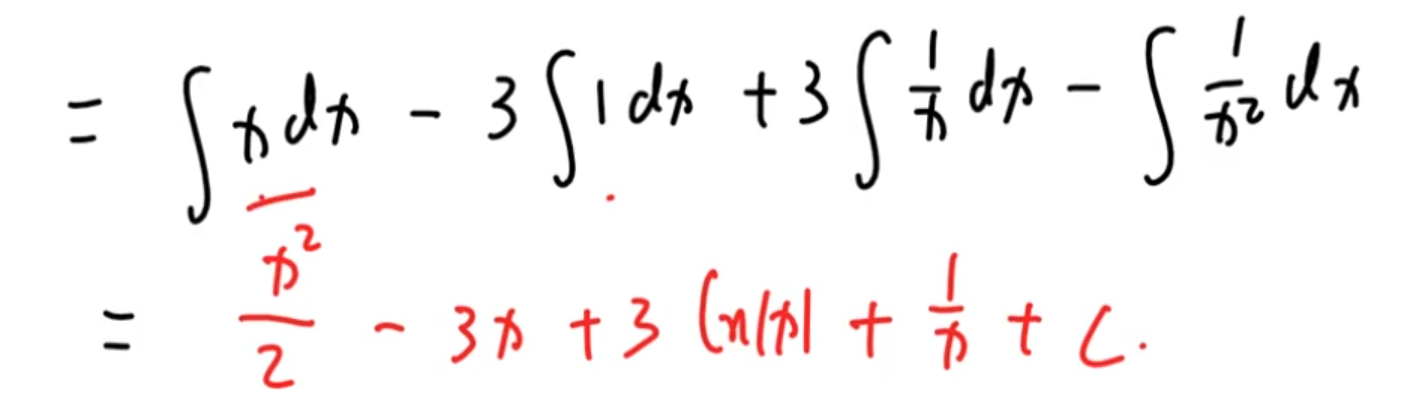 = ∫ x dx - 3 ∫ 1 dx + 3 ∫ 1/x dx - ∫ 1/x² dx
= x²/2 - 3x + 3 ln|x| + 1/x + C.